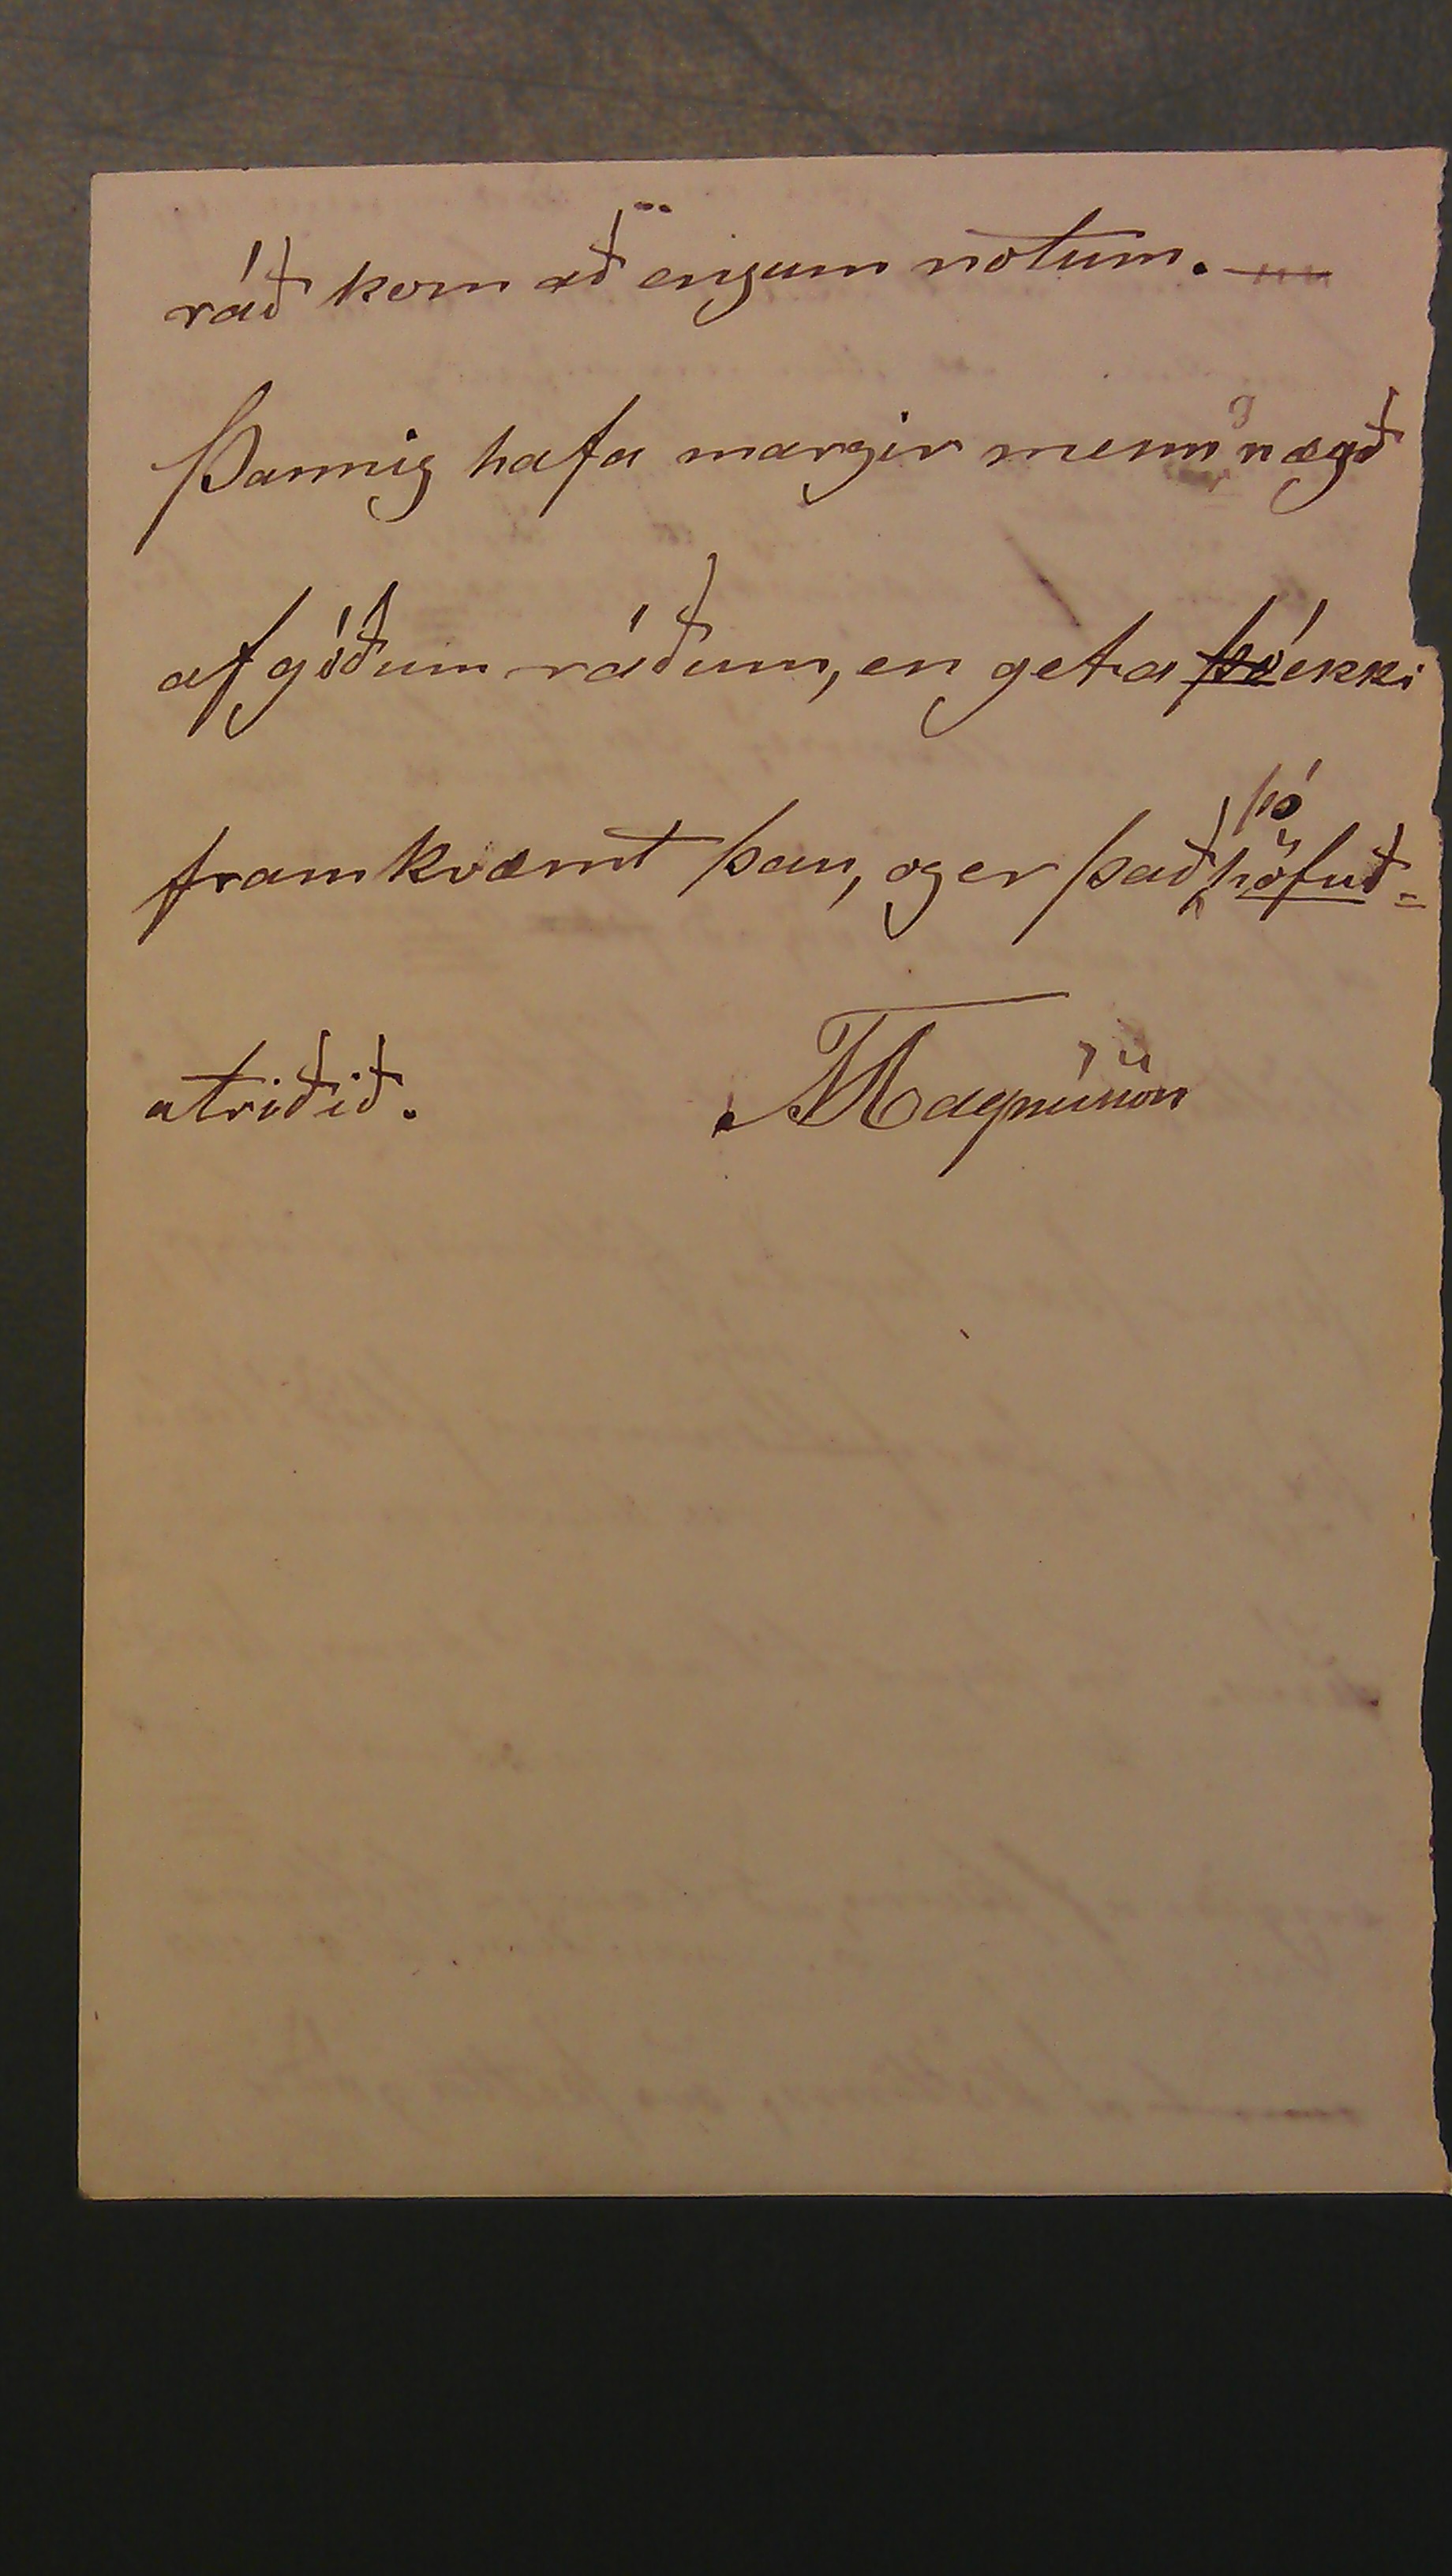 ráð kom að engum nötum. —
Þannig hafa margir menn nægð
af góðum ráðum, en geta þó ekki
þó
framkvæmt þau, og er það höfuð=
atriðið. Magnússon